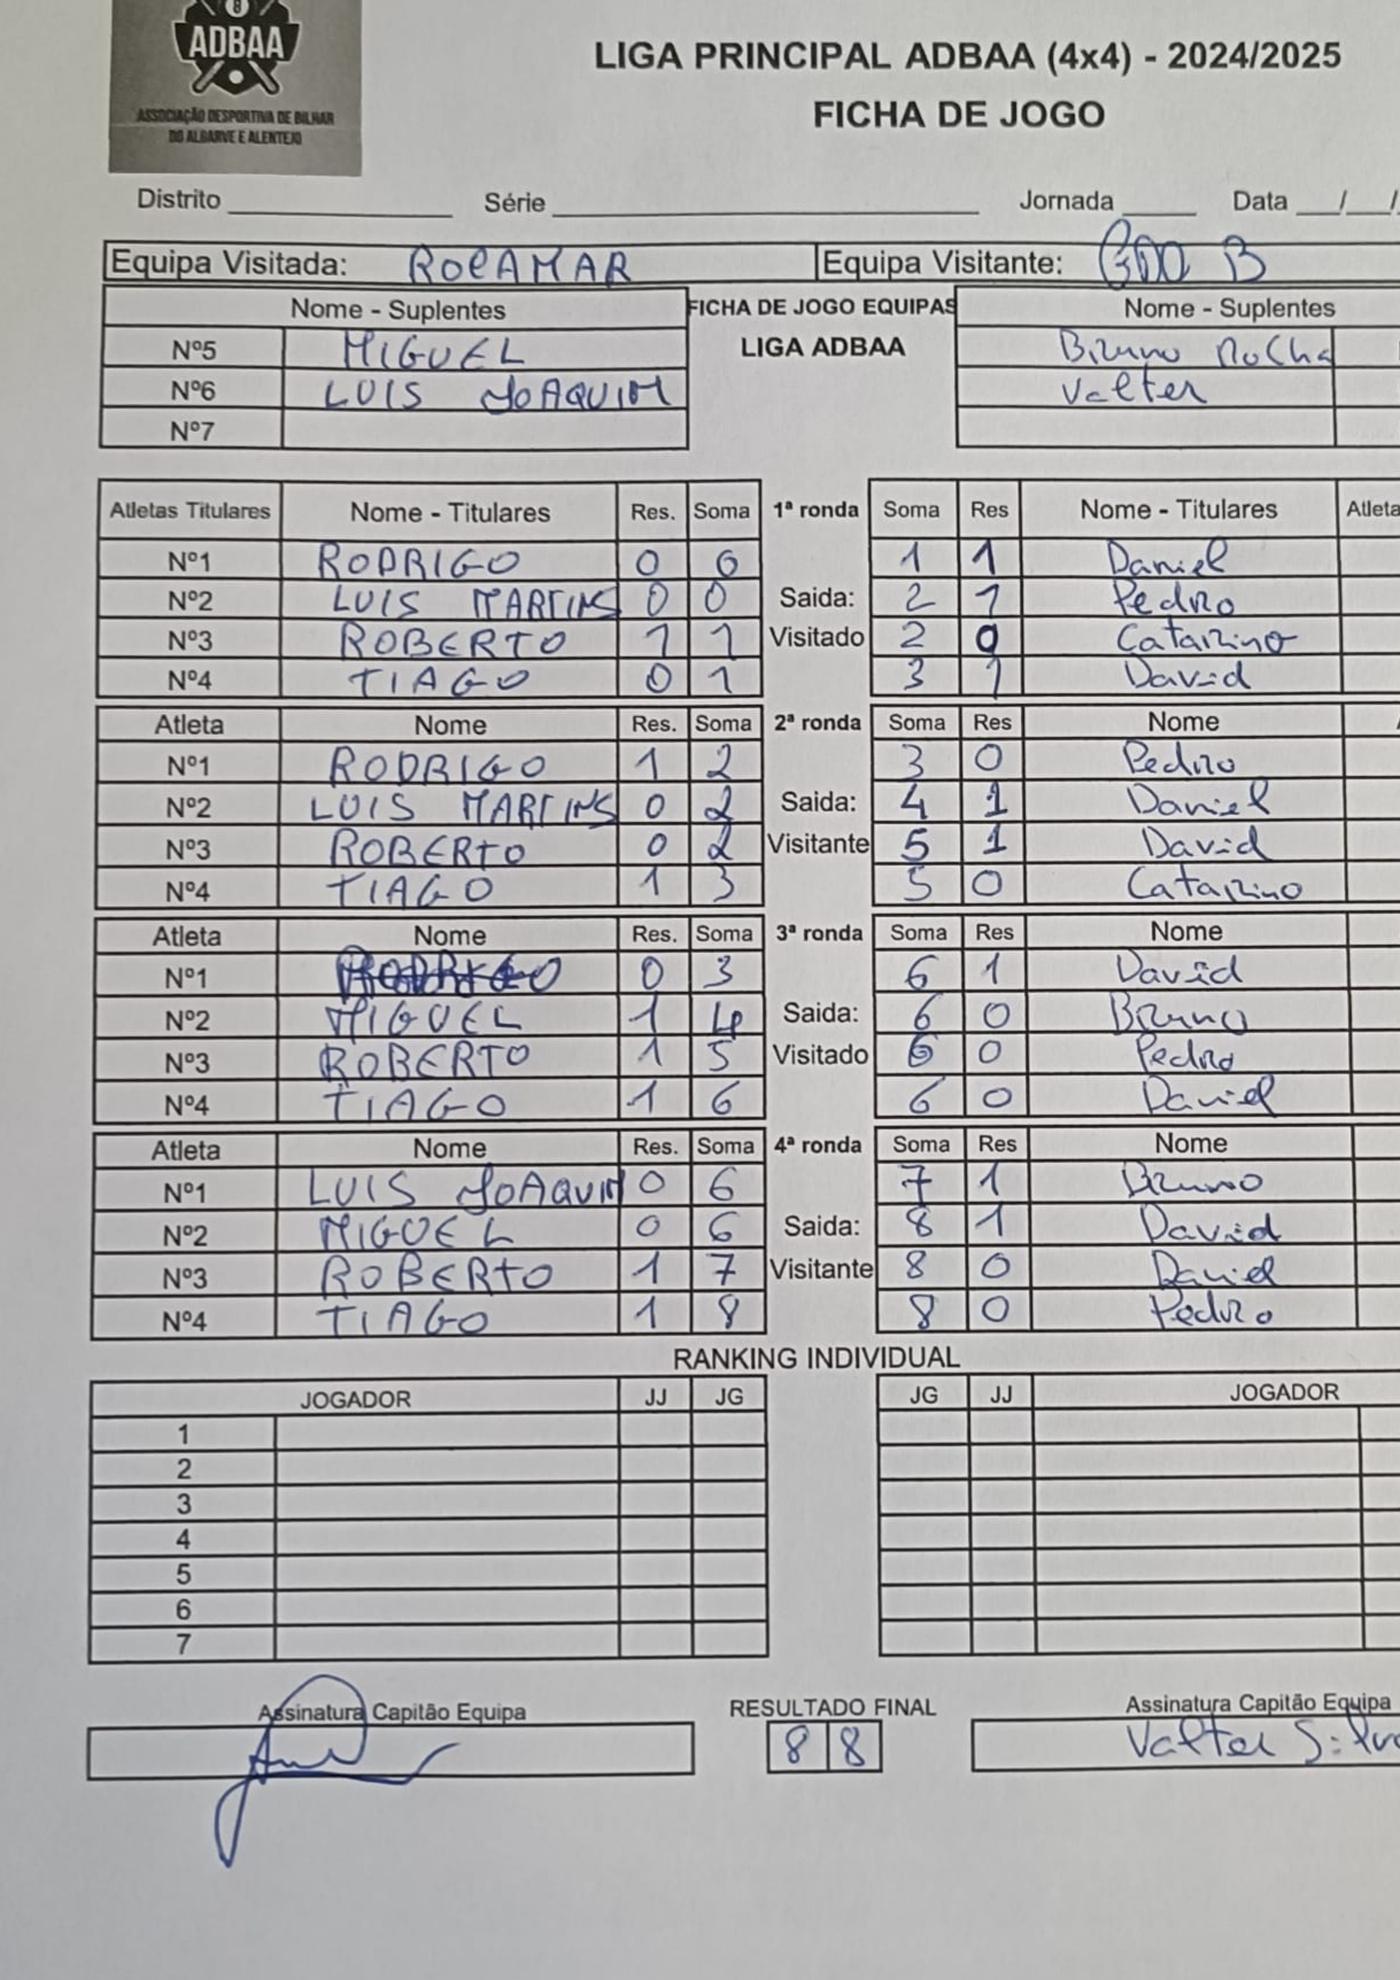 8
ADBAA
ASSOCIAÇÃO DESPORTIVA DE BILHAR
DO ALGARVE E ALENTEJO
LIGA PRINCIPAL ADBAA (4x4) - 2024/2025
FICHA DE JOGO
Distrito Série Jornada Data __/__/
Equipa Visitada: ROCAMAR Equipa Visitante: GDO B
Nome - Suplentes FICHA DE JOGO EQUIPAS Nome - Suplentes
Nº5 MIGUEL LIGA ADBAA Bruno Rocha
Nº6 LUIS JOAQUIM Valter
Nº7
Atletas Titulares Nome - Titulares Res. Soma 1ª ronda Soma Res Nome - Titulares Atleta
Nº1 RODRIGO 0 0 1 1 Daniel
Nº2 LUIS MARTINS 0 0 Saida: 2 1 Pedro
Nº3 ROBERTO 1 1 Visitado 2 0 Catarino
Nº4 TIAGO 0 1 3 1 David
Atleta Nome Res. Soma 2ª ronda Soma Res Nome
Nº1 RODRIGO 1 2 3 0 Pedro
Nº2 LUIS MARTINS 0 2 Saida: 4 1 Daniel
Nº3 ROBERTO 0 2 Visitante 5 1 David
Nº4 TIAGO 1 3 5 0 Catarino
Atleta Nome Res. Soma 3ª ronda Soma Res Nome
Nº1 RODRIGO 0 3 6 1 David
Nº2 MIGUEL 1 4 Saida: 6 0 Bruno
Nº3 ROBERTO 1 5 Visitado 6 0 Pedro
Nº4 TIAGO 1 6 6 0 Daniel
Atleta Nome Res. Soma 4ª ronda Soma Res Nome
Nº1 LUIS JOAQUIM 0 6 7 1 Bruno
Nº2 MIGUEL 0 6 Saida: 8 1 David
Nº3 ROBERTO 1 7 Visitante 8 0 Daniel
Nº4 TIAGO 1 8 8 0 Pedro
RANKING INDIVIDUAL
JOGADOR JJ JG JG JJ JOGADOR
1
2
3
4
5
6
7
Assinatura Capitão Equipa RESULTADO FINAL Assinatura Capitão Equipa
8 8 Valter Silva